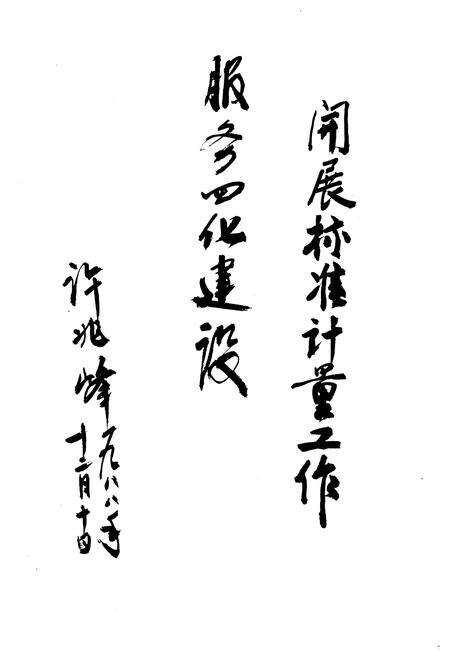 開展标准计量工作
服务四化建设
许兆峰
一九八八年
十二月十四